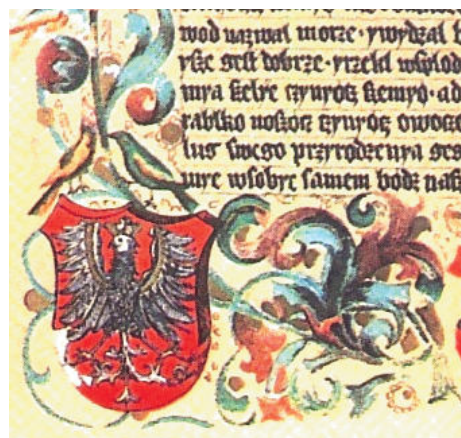 wod nazwal morze · ywydzal b
yſze geſt dobrze · yrzekl wſplod
mya ſzelye czynyøcz ſzemyø · ad
yablko noſzøcz czynyøcz owocze
lug ſwego przyrodzenya geg
mye wſobye ſamem bødz naſz